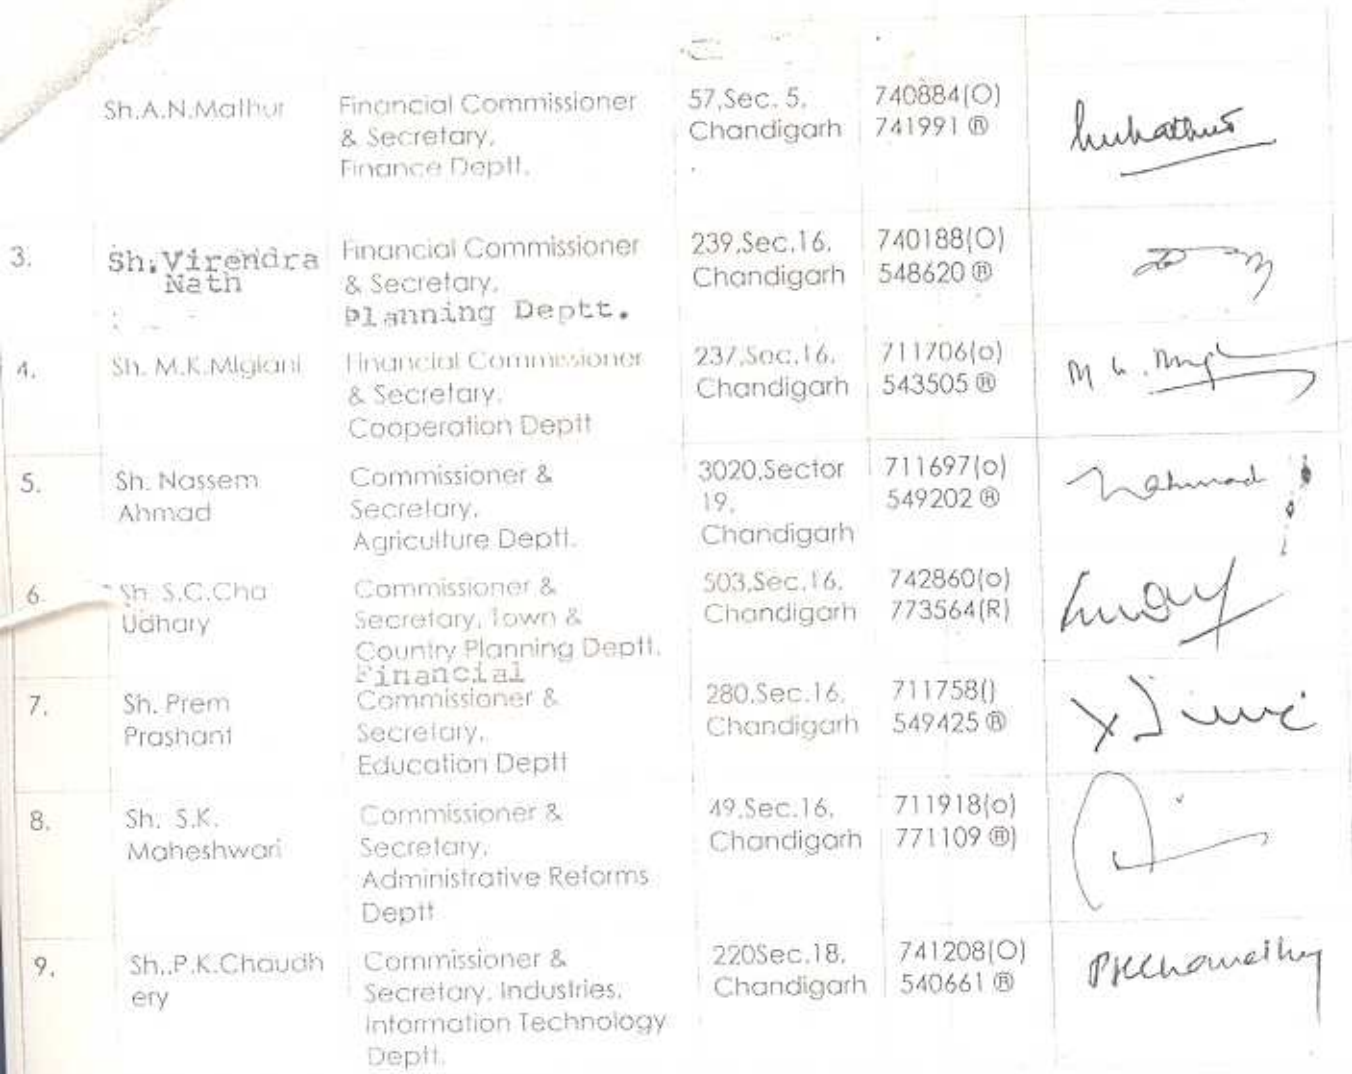 Sh.A.N.Mathur
Financial Commissioner
& Secretary,
Finance Deptt.
57,Sec. 5,
Chandigarh
740884(O)
741991 ®
3.
Sh.Virendra
Nath
Financial Commissioner
& Secretary,
Planning Deptt.
239,Sec.16,
Chandigarh
740188(O)
548620 ®
4.
Sh. M.K.Miglani
Financial Commissioner
& Secretary,
Cooperation Deptt
237,Sec.16,
Chandigarh
711706(o)
543505 ®
5.
Sh. Nassem
Ahmad
Commissioner &
Secretary,
Agriculture Deptt.
3020,Sector
19,
Chandigarh
711697(o)
549202 ®
6.
Sh. S.C.Cha
Udhary
Commissioner &
Secretary, Town &
Country Planning Deptt.
503,Sec.16,
Chandigarh
742860(o)
773564(R)
7.
Sh. Prem
Prashant
Financial
Commissioner &
Secretary,
Education Deptt
280,Sec.16,
Chandigarh
711758()
549425 ®
8.
Sh. S.K.
Maheshwari
Commissioner &
Secretary,
Administrative Reforms
Deptt
49,Sec.16,
Chandigarh
711918(o)
771109 ®)
9.
Sh..P.K.Chaudh
ery
Commissioner &
Secretary, Industries,
Information Technology
Deptt.
220Sec.18,
Chandigarh
741208(O)
540661 ®
PKChaudhery